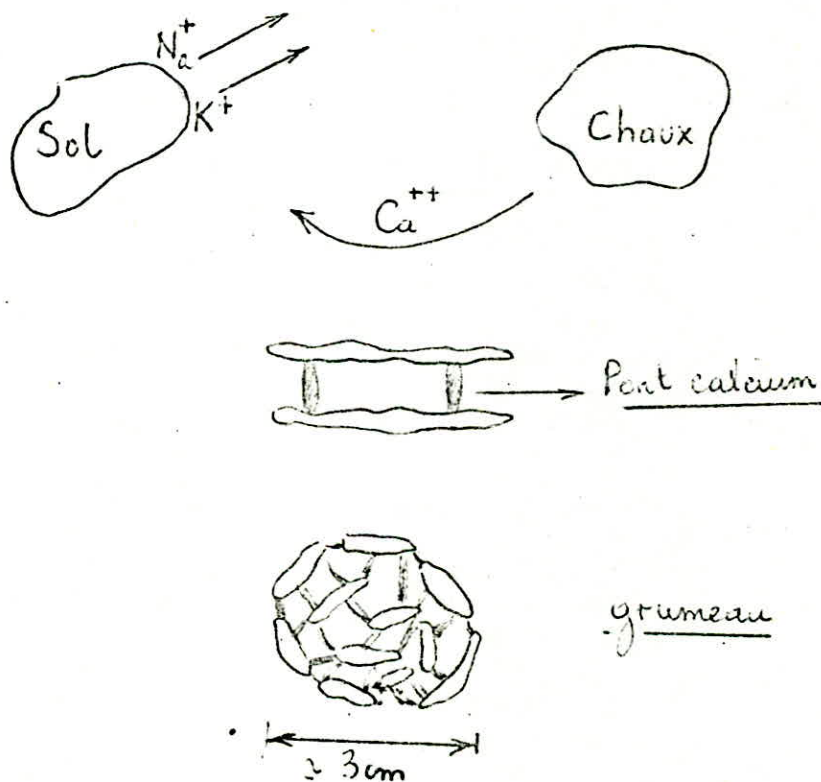 Na+
K+
Sol
Chaux
Ca++
Pont calcium
grumeau
3cm